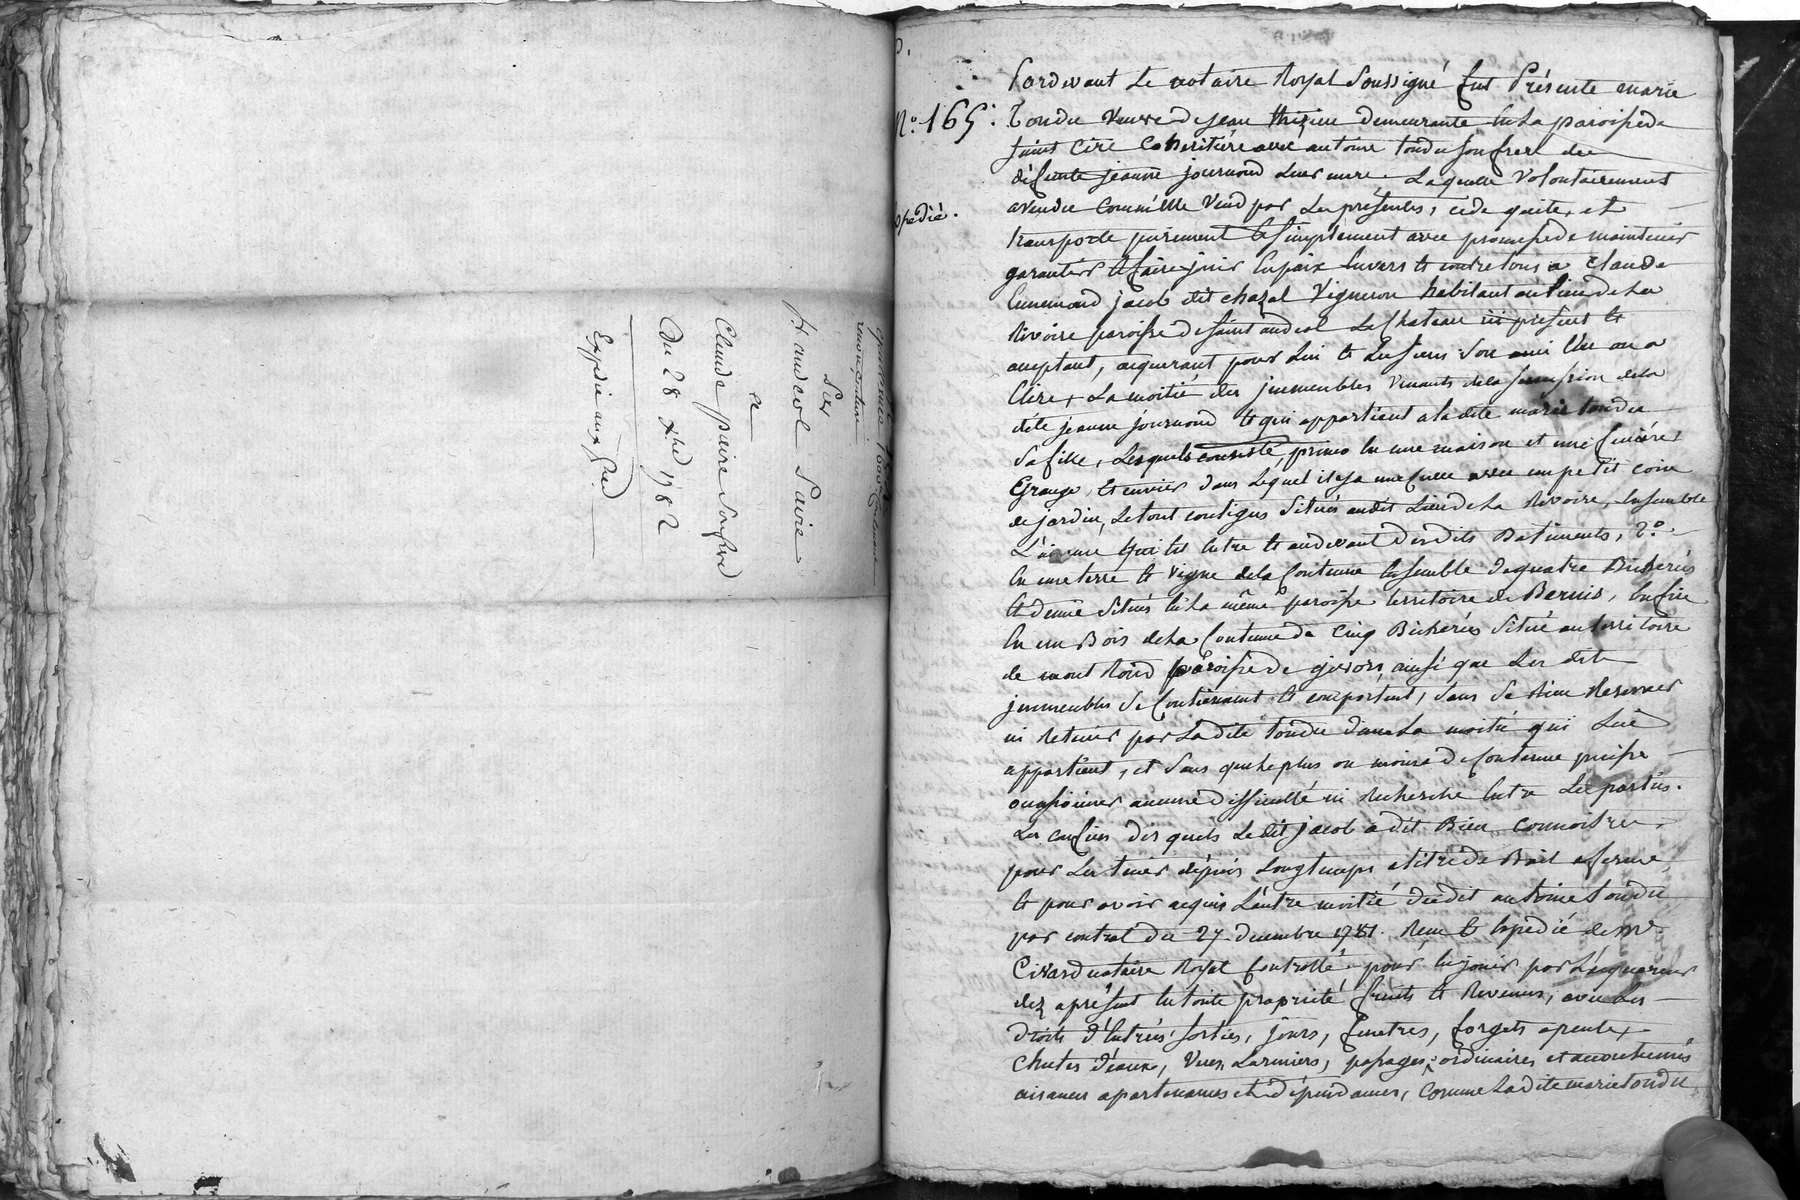 quittance 1600
renonciation
Par
H. ancol Pavie
a
Claude paire Son frere
Du 28 Xbre 1782
Expedié aux Par.
N.° 165.
expédié.
Pardevant Le notaire Royal Soussigné fut Présente marie
Tondu Veuve de jean thizieu demeurante En La paroisse de
saint Cire Coheritière avec antoine tondu son frere de
défunte jeanne journoud Leur mere. Laquelle volontairement
a vendu Comme Elle Vend par Les présentes, cede quite, et
transporte purement Et simplement avec promesse de maintenir
garantir Et faire jouir En paix Envers Et contre tous a Claude
Ennemond jacob dit chazal Vigneron habitant au Lieu de La
Rivoire paroisse de saint andeol Le Chateau ici présent Et
acceptant, acquerant pour Lui Et Les siens Son ami Elu ou a
Elire, La moitié des jmmeubles venants de la succession de la
dite jeanne journoud Et qui appartient a la dite marie tondu
Sa fille, Lesquels consiste, primo En une maison et une fenière
Grange, Et cuvier dans Lequel il y a une cuve avec un petit coin
de jardin, Le tout contigus Situés audit Lieu de La Rivoire, Ensemble
L'aisance qui Est Entre Et au devant desdits Batiments, 2.°
En une terre Et vigne de la Contenue Ensemble de quatre Bicherées
Et demie Situés En La même paroisse territoire de Bernis, Enfin
En un Bois de La Contenue de Cinq Bicherées Situé au territoire
de mont Rond paroisse de givors, ainsi que Les dits
jmmeubles Se Contiennent Et comportent, Sans Se Rien Reserver
ni Retenir par La dite tondu dans La moitié qui Lui
appartient, et Sans que Le plus ou moins de Contenue puisse
occasionner aucune difficulté ni Recherche Entre Les parties.
Les confins des quels Le dit jacob a dit Bien connoitre,
pour Les tenir depuis Longtemps a titre de Bail a ferme,
Et pour avoir acquis L'autre moitié du dit antoine tondu
par contrat du 27 decembre 1781. Reçu Et Expedié de Mr.
Cizard notaire Royal Controllé pour En jouir par L'acquereur
dez a présent En toute propriété fruits Et Revenus, avec Les
droits d'Entrées sorties, jours, fenetres, forgets apentes,
chutes d'eaux, Vues Larmiers, passages, ordinaires et accoutumés
aisances apartenances et dépendances, Comme La dite marie tondu